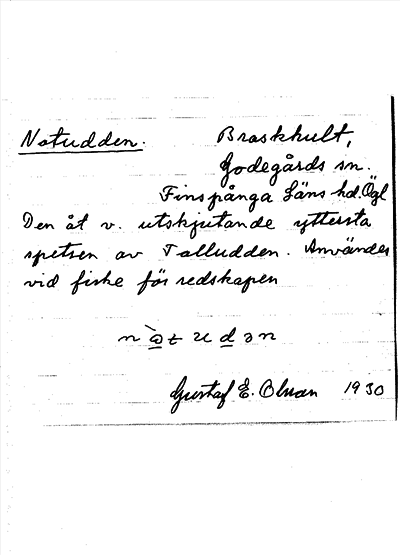 Notudden. Braskhult,
Godegårds sn.
Finspånga Läns hd. Ögl
Den åt v. utskjutande yttersta
spetsen av Talludden. Användes
vid fiske för redskapen
Gustaf E. 1930